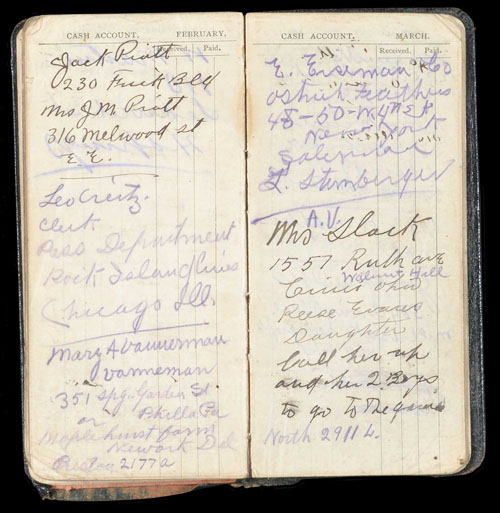 CASH ACCOUNT, FEBRUARY.
Received. Paid.
Jack Pratt
230 Frick Bld
Mrs J M Pratt
316 Melwood St
E. E.
Leo Creitz.
Clerk
Department
Rock Island Lines
Chicago Ill.
Mary A Vannerman
Vanneman
351 Spg. Garden St
Philla Pa
or
Maple hurst farm
Newark Del
2177a
CASH ACCOUNT, MARCH.
Received. Paid.
E. Eiseman & Co
Ostrich Feathers
48-50-W 4
New York
Salesman
L. Stemberger
A.V.
Mrs Slack
1557 Ruth ave
Walnut Hall
Cinci Ohio
Reese Evans
Daughter
Call her up
and her 2 Boys
to go to the game
North 2911 L.